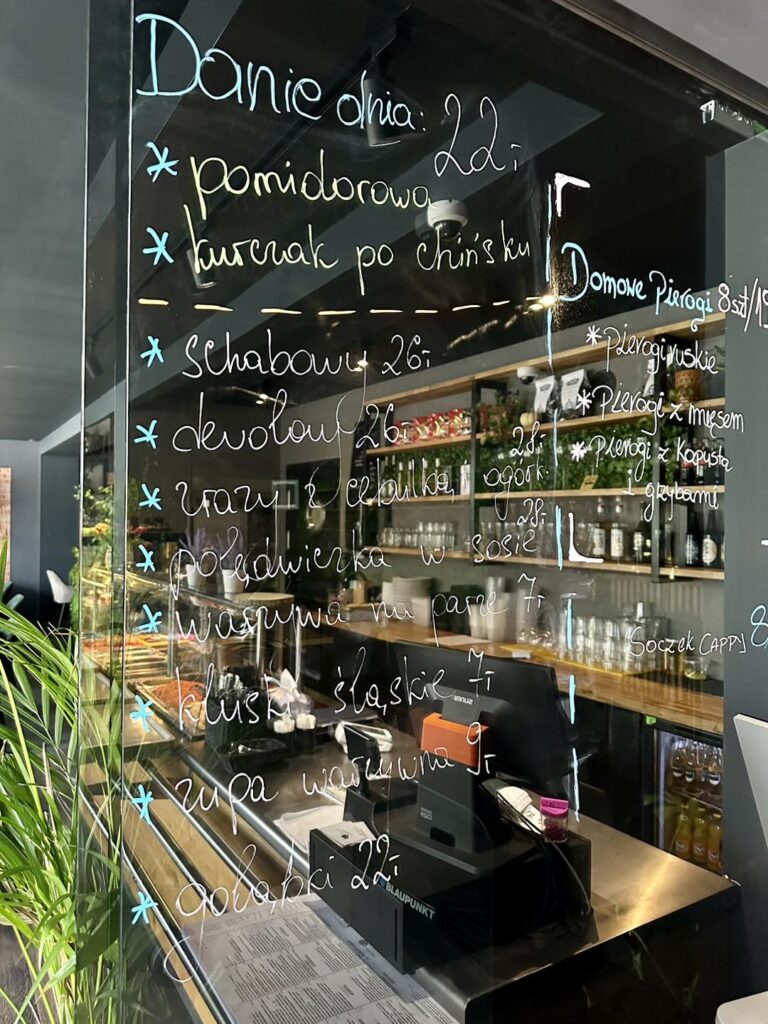 Danie dnia: 22,-
* pomidorowa
* kurczak po chińsku
* schabowy 26,-
* dewolay 26,-
* zrazy z cebulką, ogórk. 28,-
* polędwiczka w sosie 28,-
* warzywa na parze 7,-
* kluski śląskie 7,-
* zupa warzywna 9,-
* gołąbki 22,-
Domowe Pierogi 8szt/19
* Pierogi ruskie
* Pierogi z mięsem
* Pierogi z kapustą
i grzybami
Soczek CAPPY 8
BLAUPUNKT